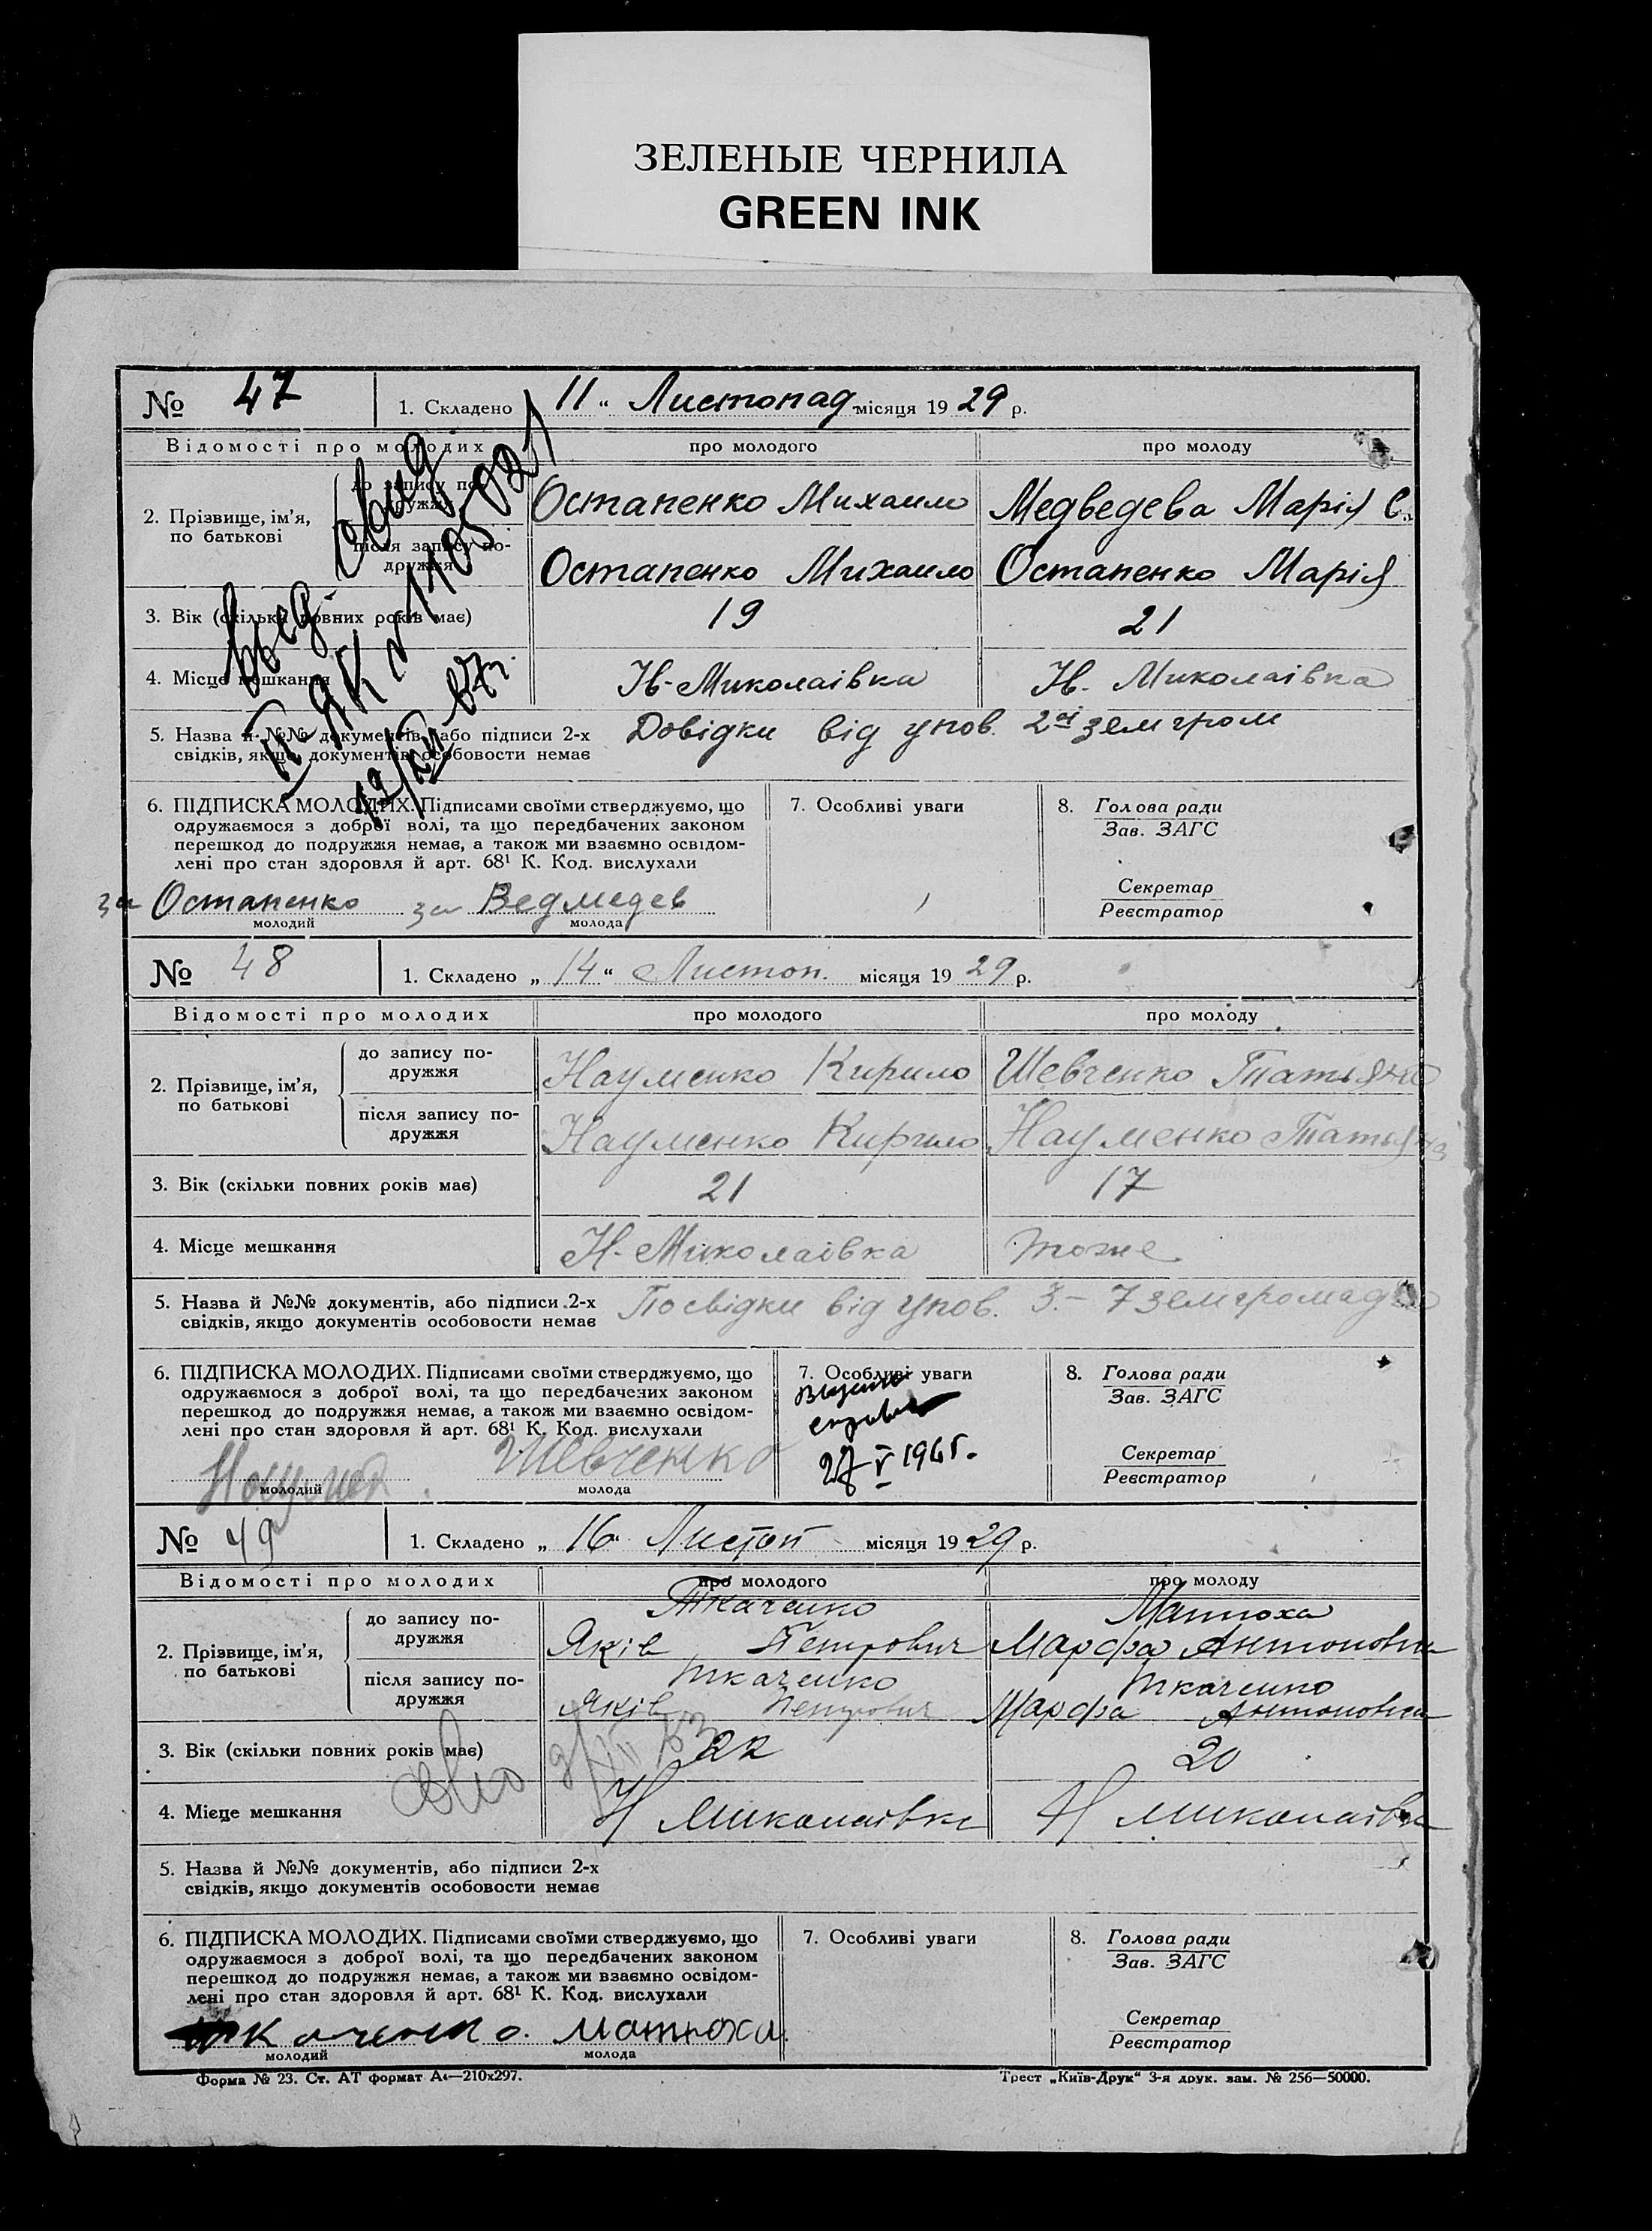 ЗЕЛЕНЫЕ ЧЕРНИЛА
GREEN INK
№ 47 1. Складено 11 “ Листопад місяця 19 29 р.
Відомості про молодих про молодого про молоду
2. Прізвище, ім’я, по батькові
до запису подружжя Остапенко Михаило Медведева Марія С.
після запису подружжя Остапенко Михаило Остапенко Марія
3. Вік (скільки повних років має) 19 21
4. Місце мешкання Нв-Миколаівка Нв. Миколаівка
5. Назва й №№ документів, або підписи 2-х Довідки від упов. 2ої зем гром
свідків, якщо документів особовости немає
вид. свид.
II-ЯК № 1105021
6. ПІДПИСКА МОЛОДИХ. Підписами своїми стверджуємо, що
одружаємося з доброї волі, та що передбачених законом
перешкод до подружжя немає, а також ми взаємно освідом-
лені про стан здоровля й арт. 68¹ К. Код. вислухали
за Остапенко за Ведмедев
молодий молода
7. Особливі уваги
8. Голова ради
Зав. ЗАГС
Секретар
Реєстратор
№ 48 1. Складено „ 14 “ Листоп. місяця 19 29 р.
Відомості про молодих про молодого про молоду
2. Прізвище, ім’я,
по батькові
до запису по-
дружжя Науменко Кирило Шевченко Татьяна
після запису по-
дружжя Науменко Кирило Науменко Татьяна
3. Вік (скільки повних років має) 21 17
4. Місце мешкання Н-Миколаівка тоже
5. Назва й №№ документів, або підписи 2-х Посвідки від упов. 3.- 7 земгромад
свідків, якщо документів особовости немає
6. ПІДПИСКА МОЛОДИХ. Підписами своїми стверджуємо, що
одружаємося з доброї волі, та що передбачених законом
перешкод до подружжя немає, а також ми взаємно освідом-
лені про стан здоровля й арт. 68¹ К. Код. вислухали
Шевченко
молодий молода
7. Особливі уваги
27 V 1965.
8. Голова ради
Зав. ЗАГС
Секретар
Реєстратор
№ 49 1. Складено „ 16 “ Листоп місяця 19 29 р.
Відомості про молодих про молодого про молоду
2. Прізвище, ім’я,
по батькові
до запису по-
дружжя
Ткаченко Матюха
Яків Петрович Марфа Антоновна
після запису по-
дружжя
Ткаченко Ткаченко
Яків Петрович Марфа Антоновна
3. Вік (скільки повних років має) 22 20
4. Місце мешкання Н Миколаівка Н Миколаівка
5. Назва й №№ документів, або підписи 2-х
свідків, якщо документів особовости немає
6. ПІДПИСКА МОЛОДИХ. Підписами своїми стверджуємо, що
одружаємося з доброї волі, та що передбачених законом
перешкод до подружжя немає, а також ми взаємно освідом-
лені про стан здоровля й арт. 68¹ К. Код. вислухали
Ткаченко. Матюха.
молодий молода
7. Особливі уваги
8. Голова ради
Зав. ЗАГС
Секретар
Реєстратор
Форма № 23. Ст. АТ формат А₄—210x297. Трест „Київ-Друк“ 3-я друк. зам. № 256—50000.